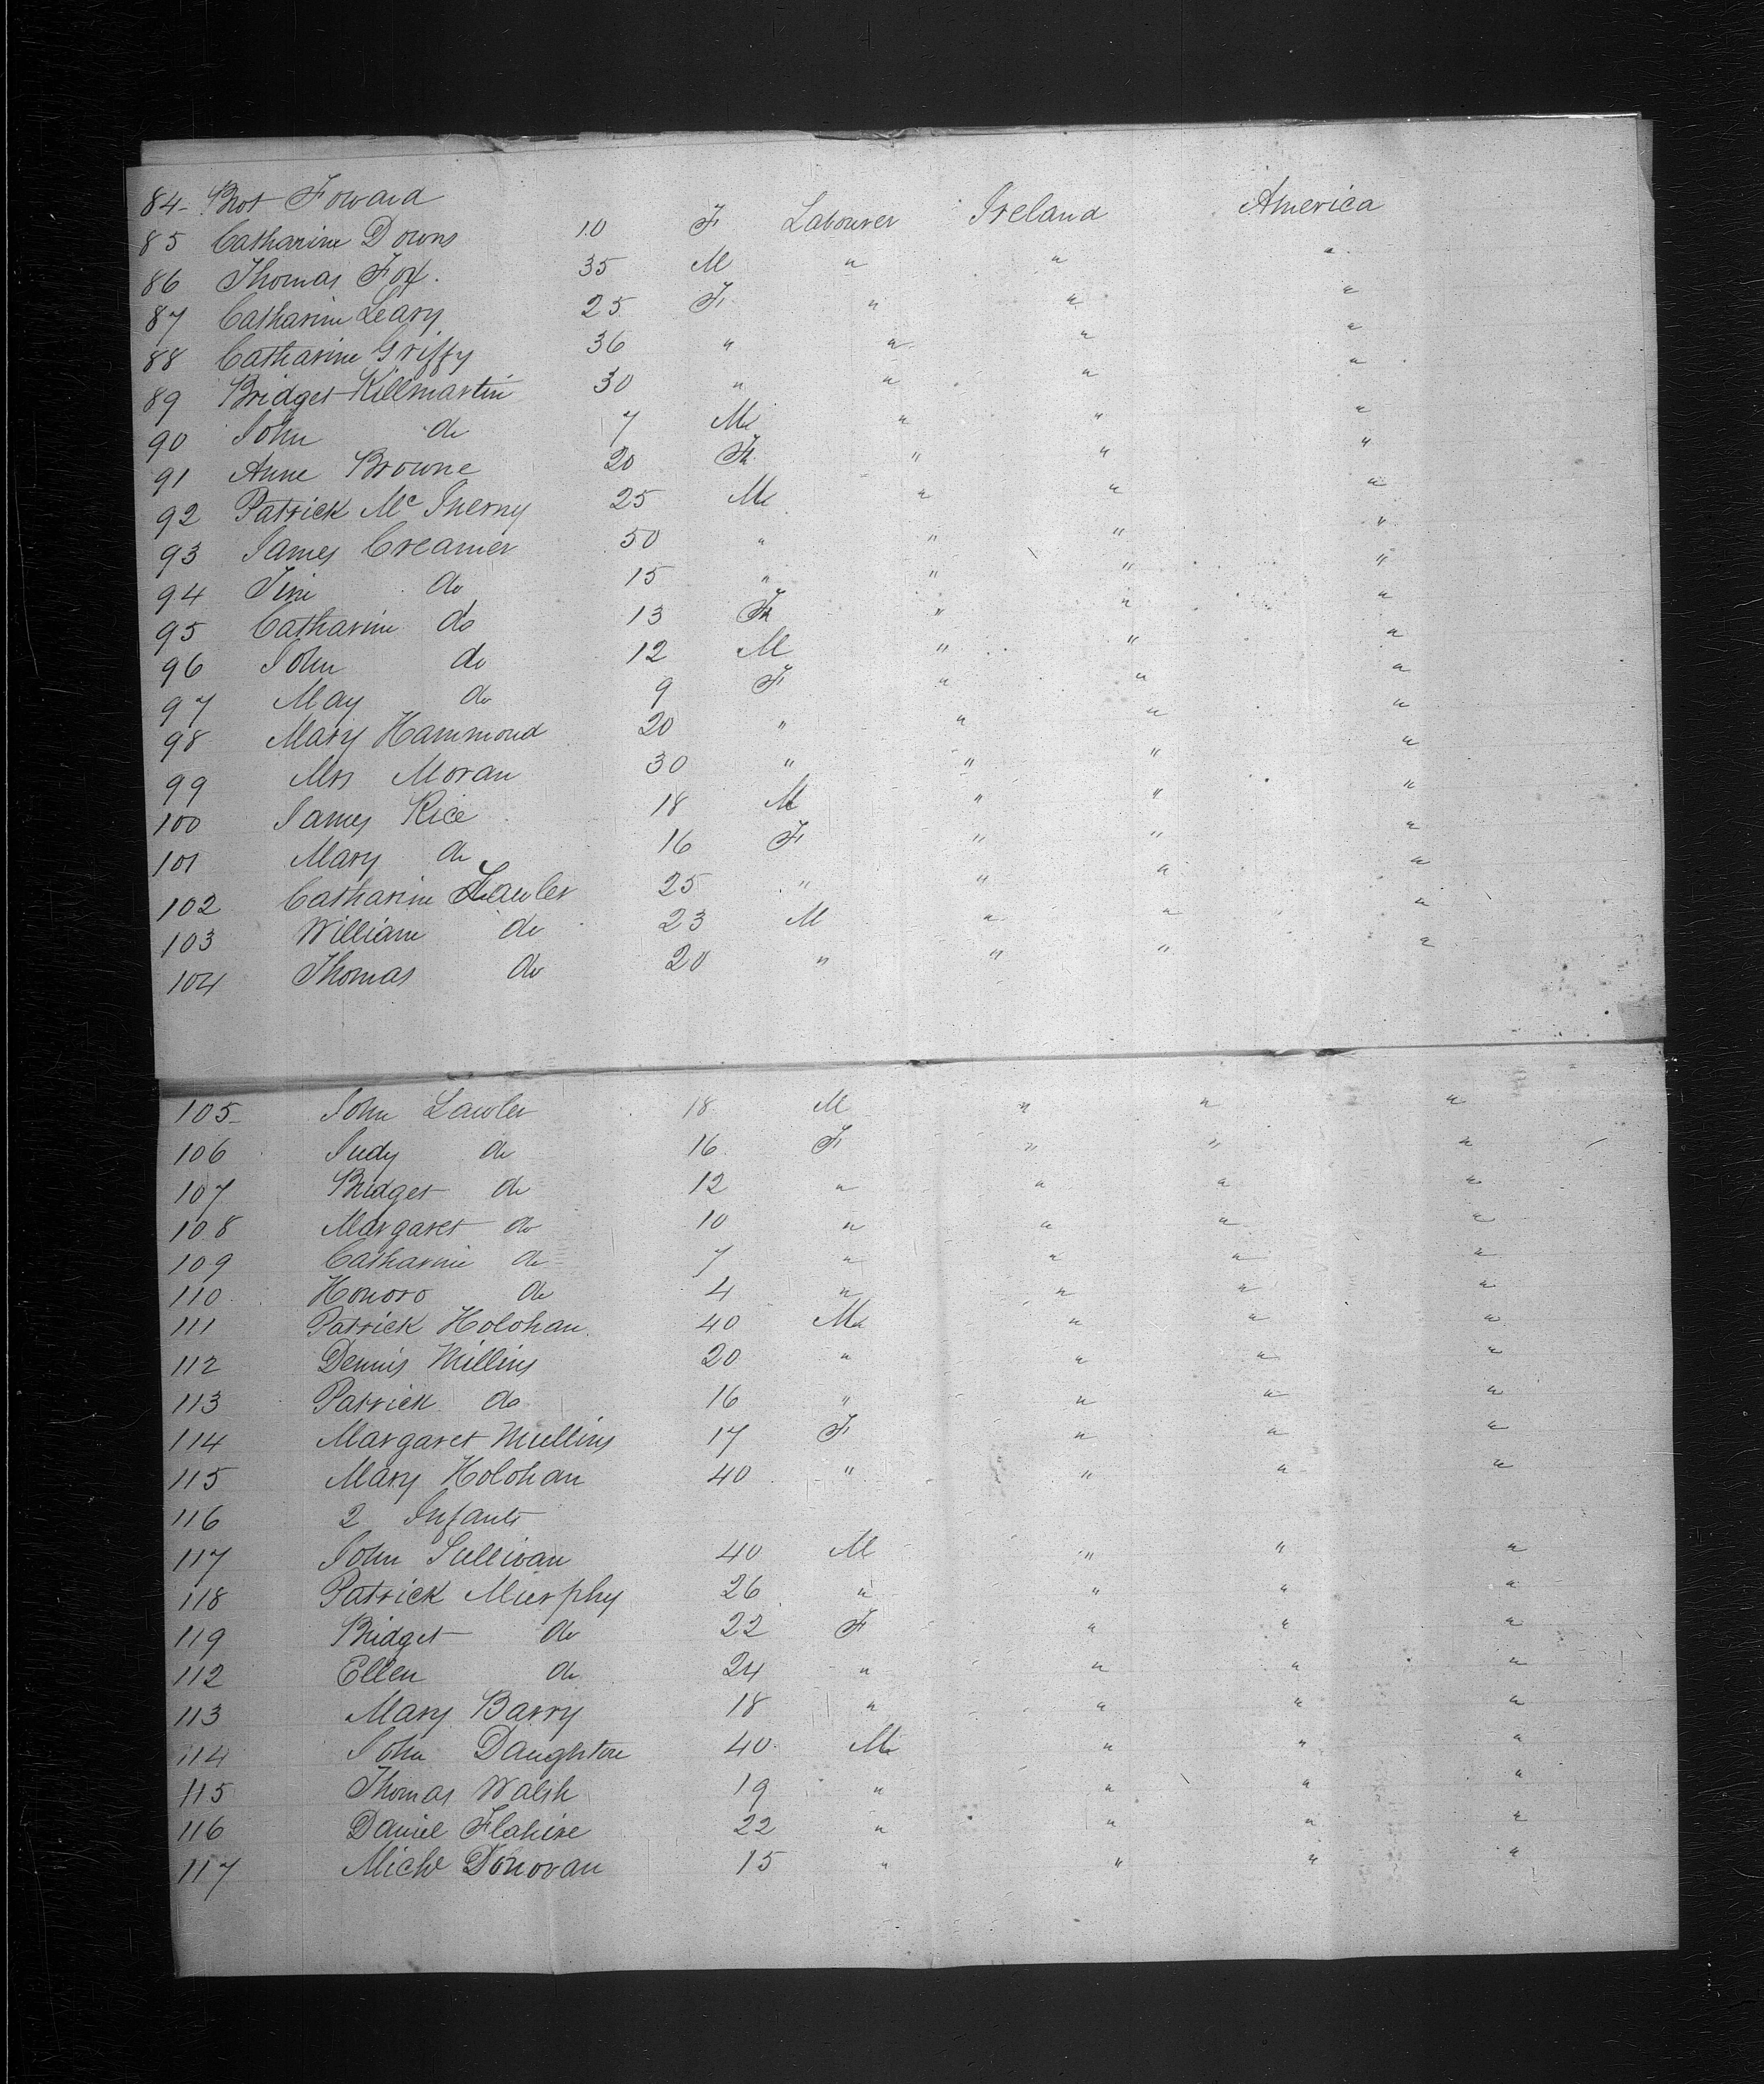 84 - Brot Foward
85 Catharine Downs 10 F Labourer Ireland America
86 Thomas Fox. 35 M " " "
87 Catharine Leary 25 F " " "
88 Catharine Griffy 36 " " " "
89 Bridget Killmartin 30 " " " "
90 John do 7 M " " "
91 Anne Browne 20 F " " "
92 Patrick Mc Inerny 25 M " " "
93 James Creamer 50 " " " "
94 Tim do 15 " " " "
95 Catharine do 13 F " " "
96 John do 12 M " " "
97 May do 9 F " " "
98 Mary Hammond 20 " " " "
99 Mrs Moran 30 " " " "
100 James Rice 18 M " " "
101 Mary do 16 F " " "
102 Catharine Lawler 25 " " " "
103 William do 23 M " " "
104 Thomas do 20 " " " "
105 - John Lawler 18 M " " "
106 Judy do 16 F " " "
107 Bridget do 12 " " " "
108 Margaret do 10 " " " "
109 Catharine do 7 " " " "
110 Honoro do 4 " " " "
111 Patrick Holohan 40 M " " "
112 Dennis Millins 20 " " " "
113 Patrick do 16 " " " "
114 Margaret Mullins 17 F " " "
115 Mary Holohan 40 " " " "
116 2 Infants
117 John Sullivan 40 M " " "
118 Patrick Murphy 26 " " " "
119 Bridget do 22 F " " "
112 Ellen do 24 " " " "
113 Mary Barry 18 " " " "
114 John Daughton 40 M " " "
115 Thomas Walsh 19 " " " "
116 Daniel Flahive 22 " " " "
117 Michl Donovan 15 " " " "